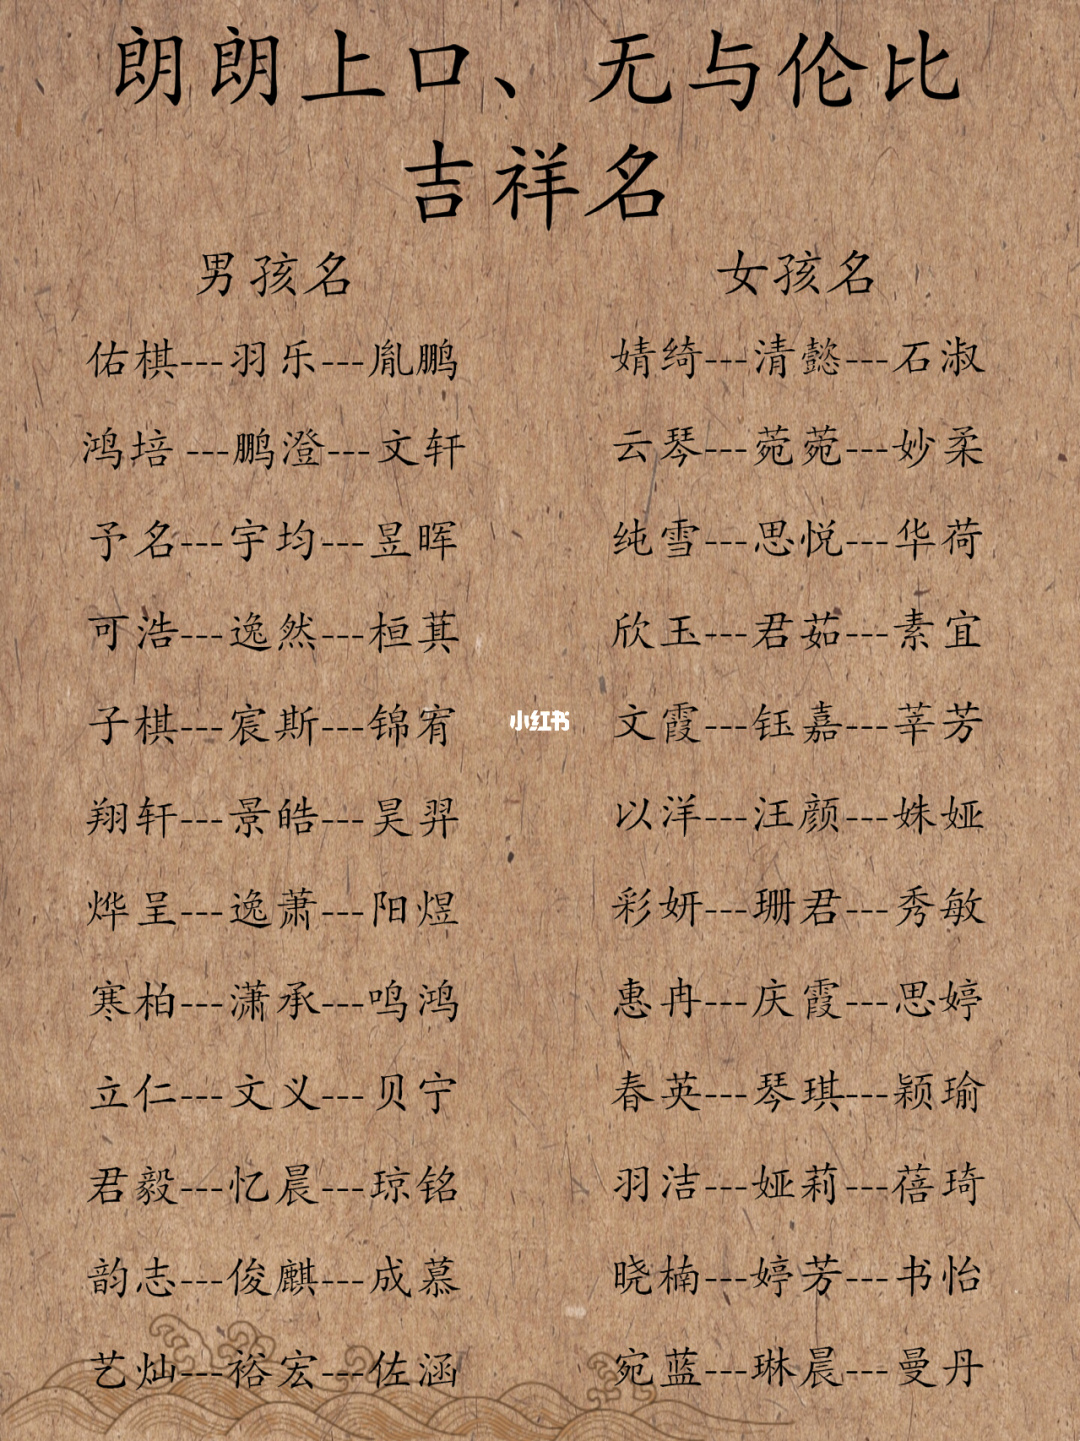 朗朗上口、无与伦比
吉祥名
男孩名
佑棋---羽乐---胤鹏
鸿培 ---鹏澄---文轩
予名---宇均---昱晖
可浩---逸然---桓萁
子棋---宸斯---锦宥
翔轩---景皓---昊羿
烨呈---逸萧---阳煜
寒柏---潇承---鸣鸿
立仁---文义---贝宁
君毅---忆晨---琼铭
韵志---俊麒---成慕
艺灿---裕宏---佐涵
女孩名
婧绮---清懿---石淑
云琴---菀菀---妙柔
纯雪---思悦---华荷
欣玉---君茹---素宜
文霞---钰嘉---莘芳
以洋---汪颜---姝娅
彩妍---珊君---秀敏
惠冉---庆霞---思婷
春英---琴琪---颖瑜
羽洁---娅莉---蓓琦
晓楠---婷芳---书怡
宛蓝---琳晨---曼丹
小红书